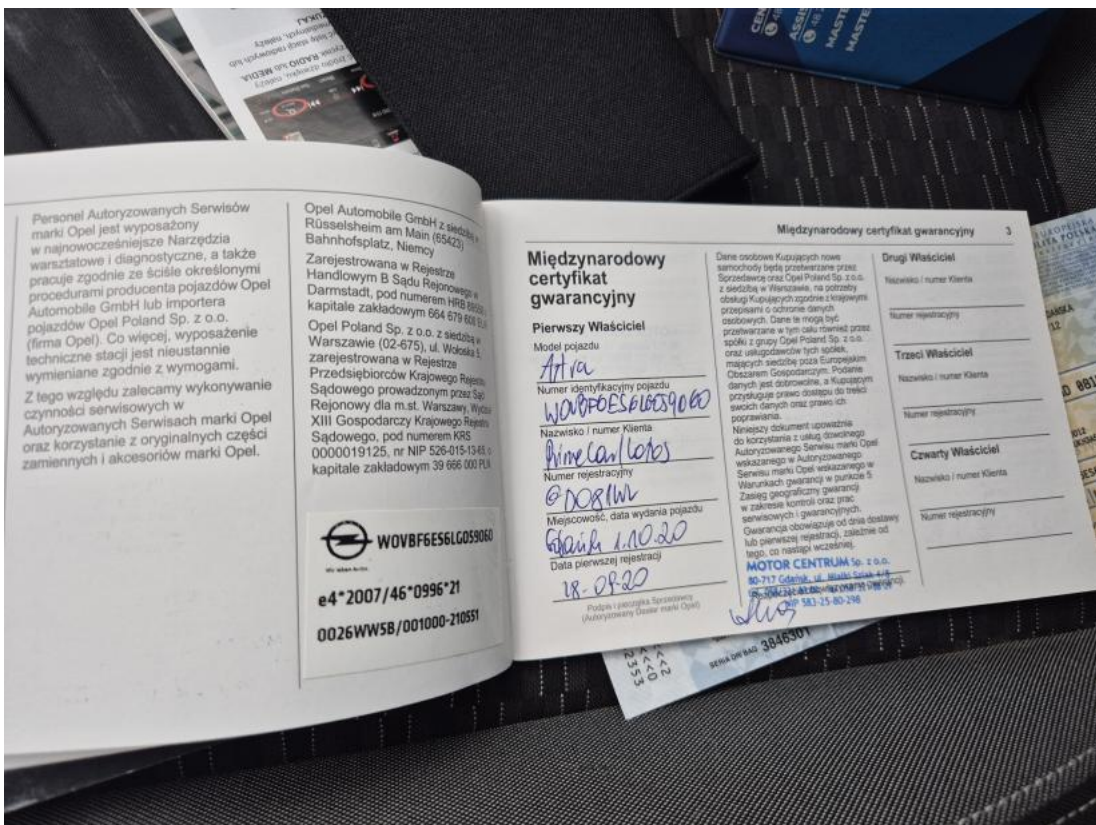 UKAJ.
RADIO lub MEDIA
CEN
ASSIS
MASTE
MASTE
Personel Autoryzowanych Serwisów
marki Opel jest wyposażony
w najnowocześniejsze Narzędzia
warsztatowe i diagnostyczne, a także
pracuje zgodnie ze ściśle określonymi
procedurami producenta pojazdów Opel
Automobile GmbH lub importera
pojazdów Opel Poland Sp. z o.o.
(firma Opel). Co więcej, wyposażenie
techniczne stacji jest nieustannie
wymieniane zgodnie z wymogami.
Z tego względu zalecamy wykonywanie
czynności serwisowych w
Autoryzowanych Serwisach marki Opel
oraz korzystanie z oryginalnych części
zamiennych i akcesoriów marki Opel.
Opel Automobile GmbH z siedzibą w
Rüsselsheim am Main (65423)
Bahnhofsplatz, Niemcy
Zarejestrowana w Rejestrze
Handlowym B Sądu Rejonowego w
Darmstadt, pod numerem HRB
kapitale zakładowym 664 679 608
Opel Poland Sp. z o.o. z siedzibą w
Warszawie (02-675), ul. Wołoska 5,
zarejestrowana w Rejestrze
Przedsiębiorców Krajowego Rejestru
Sądowego prowadzonym przez Sąd
Rejonowy dla m.st. Warszawy,
XIII Gospodarczy Krajowego Rejestru
Sądowego, pod numerem KRS
0000019125, nr NIP
kapitale zakładowym 39 666 000 PLN
W0VBF6ES6LG059060
e4*2007/46*0996*21
0026WW5B/001000-210551
Międzynarodowy certyfikat gwarancyjny 3
Międzynarodowy
certyfikat
gwarancyjny
Pierwszy Właściciel
Model pojazdu
Astra
Numer identyfikacyjny pojazdu
W0VBF6ES6LG059060
Nazwisko / numer Klienta
PrimeCar/Lotos
Numer rejestracyjny
GD081WL
Miejscowość, data wydania pojazdu
Gdańsk 1.10.20
Data pierwszej rejestracji
18-09-20
Podpis i pieczątka Sprzedawcy
(Autoryzowany Dealer marki Opel)
Dane osobowe Kupujących nowe
samochody będą przetwarzane przez
Sprzedawcę oraz Opel Poland Sp. z o.o.
z siedzibą w Warszawie, na potrzeby
obsługi Kupujących zgodnie z krajowymi
przepisami o ochronie danych
osobowych. Dane te mogą być
przetwarzane w tym celu również przez
spółki z grupy Opel Poland Sp. z o.o.
oraz usługodawców tych spółek,
mających siedzibę poza Europejskim
Obszarem Gospodarczym. Podanie
danych jest dobrowolne, a Kupującym
przysługuje prawo dostępu do treści
swoich danych oraz prawo ich
poprawiania.
Niniejszy dokument upoważnia
do korzystania z usług dowolnego
Autoryzowanego Serwisu marki Opel
wskazanego w Autoryzowanego
Serwisu marki Opel wskazanego w
Warunkach gwarancji w punkcie 5
Zasięg geograficzny gwarancji
w zakresie kontroli oraz prac
serwisowych i gwarancyjnych.
Gwarancja obowiązuje od dnia dostawy
lub pierwszej rejestracji, zależnie od
tego, co nastąpi wcześniej.
MOTOR CENTRUM Sp. z o.o.
80-717 Gdańsk, ul.
NIP 583-25-80-298
Drugi Właściciel
Nazwisko / numer Klienta
Numer rejestracyjny
Trzeci Właściciel
Nazwisko / numer Klienta
Numer rejestracyjny
Czwarty Właściciel
Nazwisko / numer Klienta
Numer rejestracyjny
SERIA DR/BAG 3846301